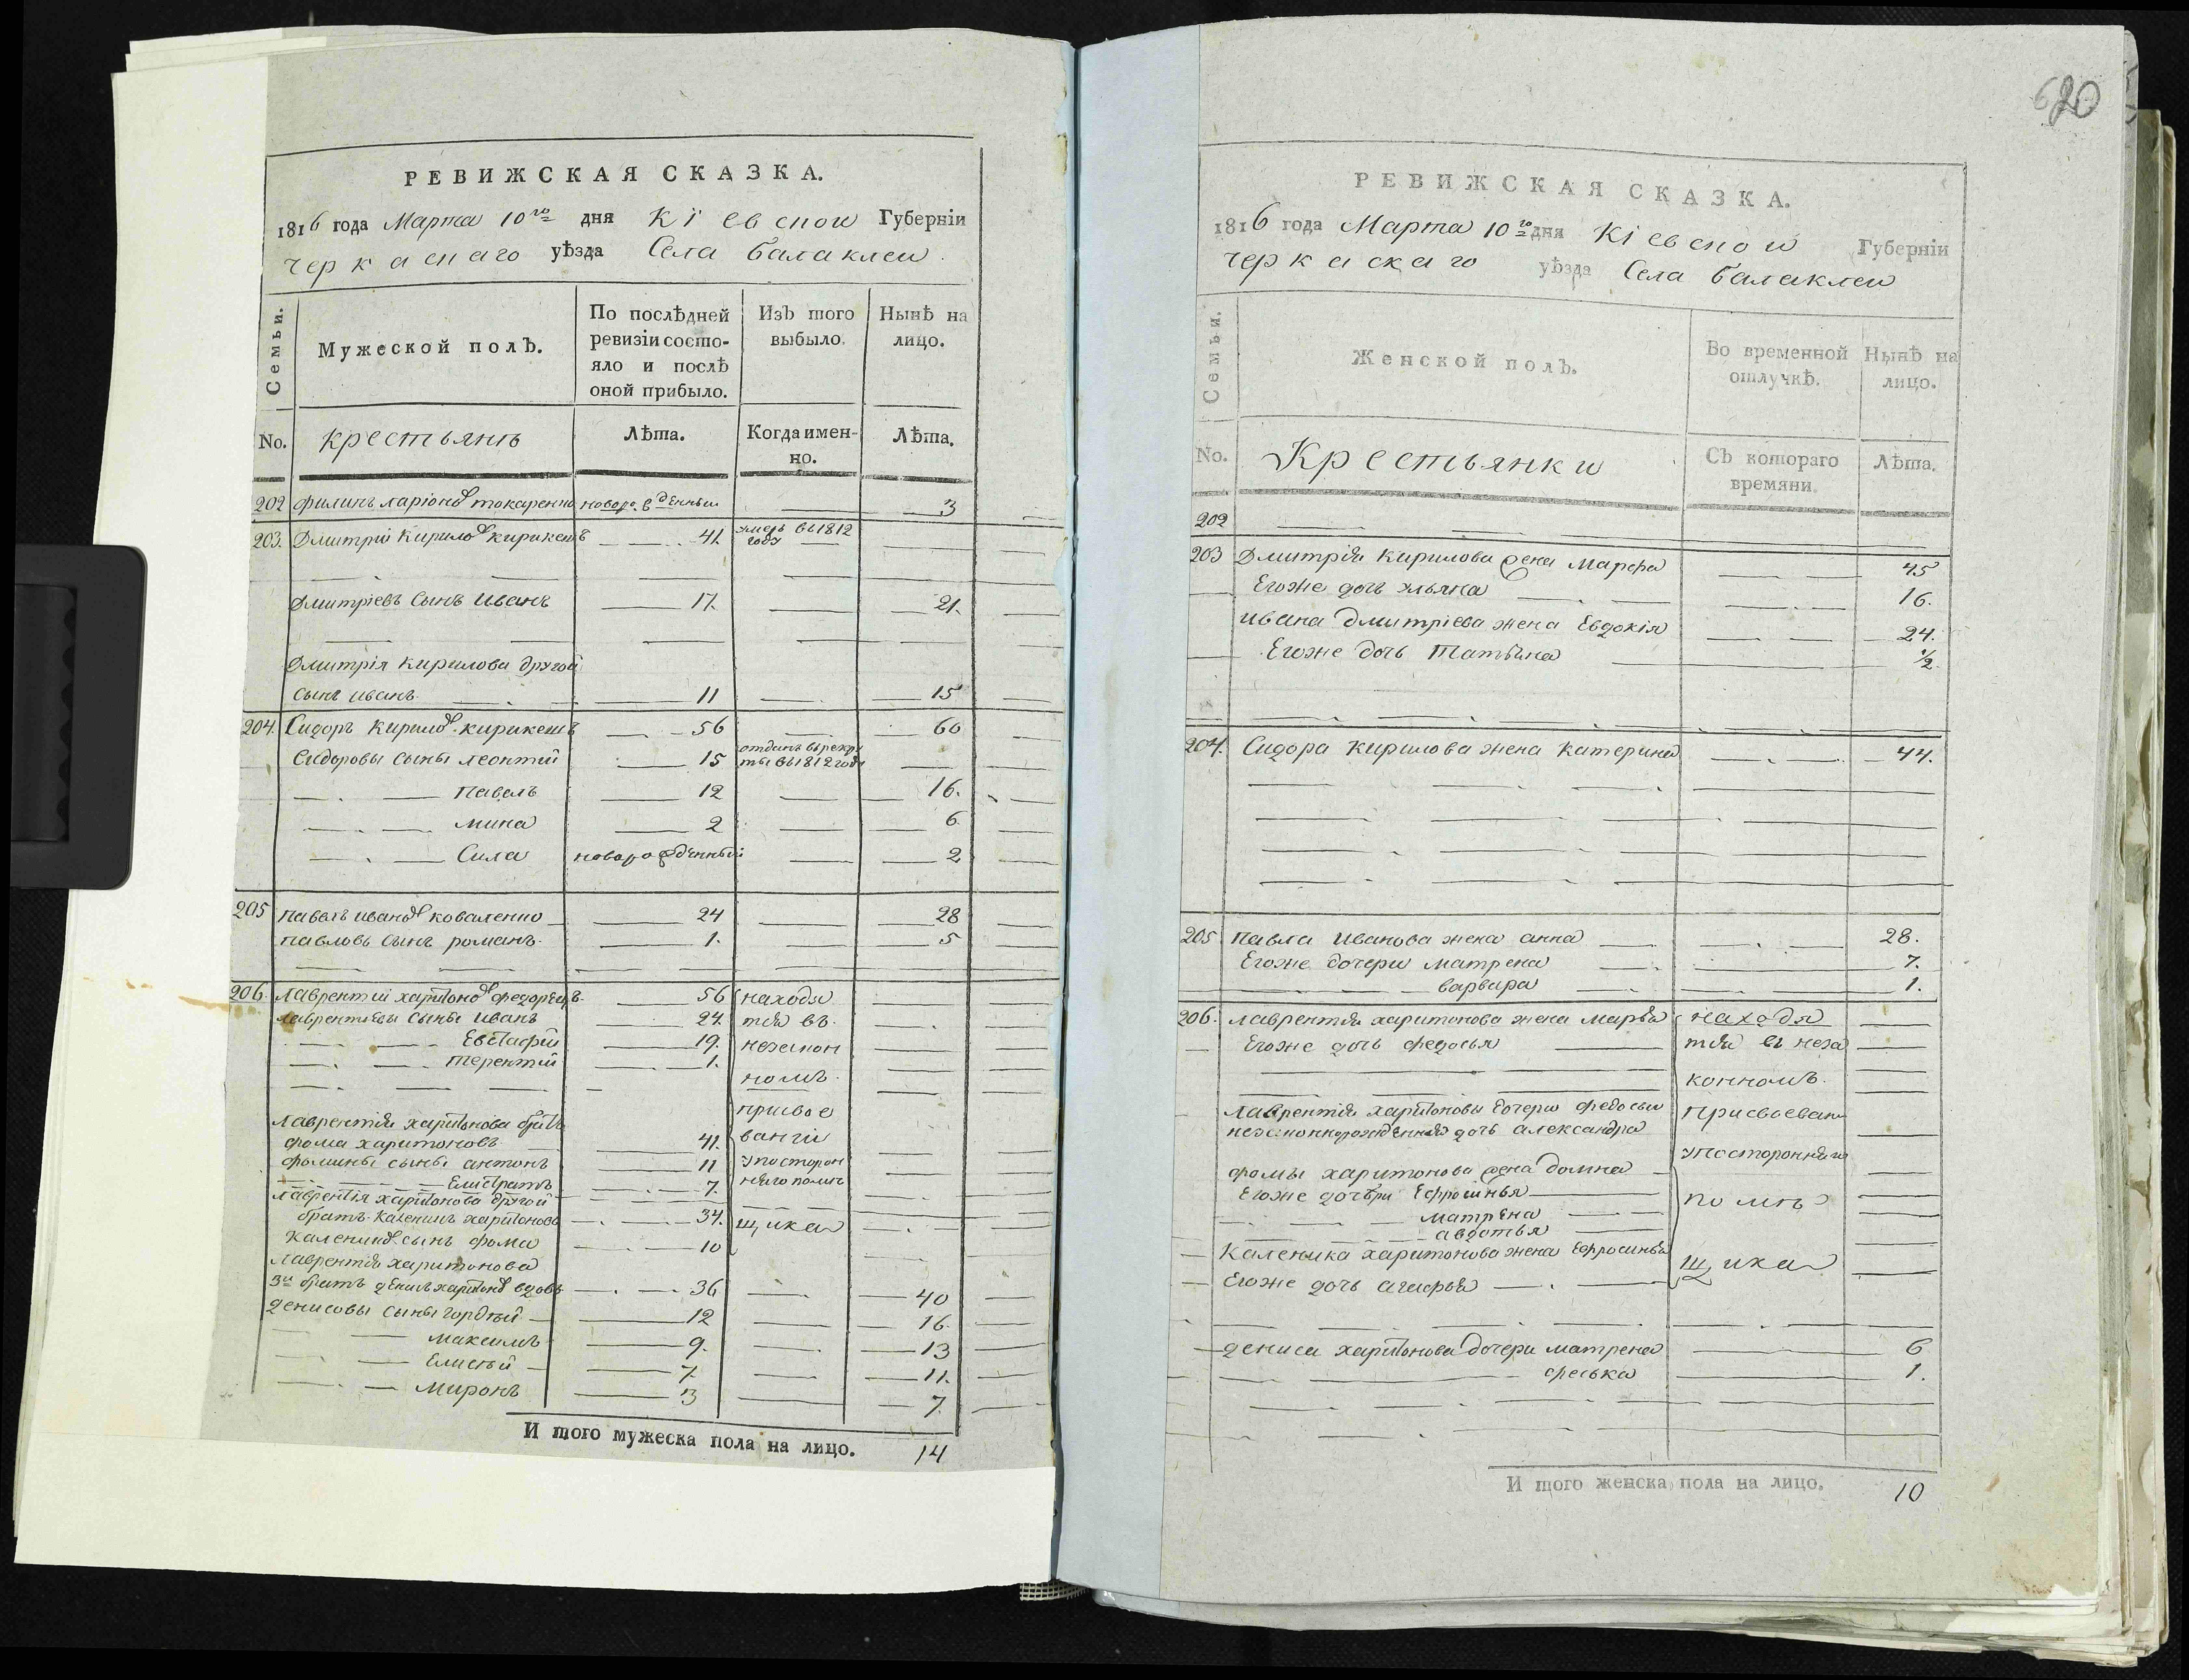 РЕВИЖСКАЯ СКАЗКА.
1816 года Марта 10го дня Кіевской Губерніи
Черкаскаго уѣзда Села Балаклеи.
Семьи.
Мужеской полЪ.
По послѣдней ревизіи состояло и послѣ оной прибыло.
ИзЪ того выбыло.
НынѢ на лицо.
No.
крестьянъ
Лѣта.
Когда именно.
Лѣта.
202 филипъ ларіоновъ токаренко новорожденный 3
203. Дмитрій Кириловъ кирикешъ 41. умеръ въ 1812 году
Дмитріевъ Сынъ Иванъ 17. 21.
Дмитрія Кирилова другой
сынъ иванъ 11 15
204. Сидоръ Кириловъ кирикешъ 56 60
Сидоровы сыны леонтий 15 отданъ в рекруты в 1812 году
Павелъ 12 16.
мина 2 6
Сила новорожденный 2
205 павелъ ивановъ коваленко 24 28
павловъ сынъ романъ 1. 5
206. лаврентий харитоновъ федорецъ 56
лаврентиевы сыны иванъ 24.
Евстафий 19.
терентий 1.
находятся въ незаконномъ присвоевании у постороннего помещика
лаврентия харитонова братъ
фома харитоновъ 41.
фомины сыны антонъ 11
Елистратъ 7.
лаврентия харитонова другой
братъ каленикъ харитоновъ 34.
калениковъ сынъ фома 10
лаврентия харитонова
3й братъ денисъ харитоновъ вдовъ 36 40
денисовы сыны гордѣй 12 16.
максимъ 9. 13
Елисѣй 7 11.
миронъ 3 7.
И того мужеска пола на лицо. 14
620
РЕВИЖСКАЯ СКАЗКА.
1816 года Марта 10го дня Кіевской Губерніи
Черкаскаго уѣзда Села Балаклеи
Семьи.
Женской полЪ.
Во временной отлучкѣ.
НынѢ на лицо.
No.
Крестьянки
СЪ котораго времяни.
Лѣта.
202
203 Дмитрія Кирилова жена Марфа 45
Егоже дочь ульяна 16.
ивана дмитріева жена Евдокія 24.
Егоже дочь Татьяна 1/2
204. Сидора Кирилова жена Катерина 44.
205. Павла Иванова жена анна 28.
Егоже дочери матрена 7.
варвара 1.
206. лаврентия харитонова жена марья
Егоже дочь федосья
находятся в незаконномъ присвоевании у постороннего помещика
лаврентия харитонова дочери федосьи
незаконнорожденная дочь александра
фомы харитонова жена домна
Егоже дочери Ефросинья
матрена
авдотья
каленика харитонова жена Ефросинья
Егоже дочь агафья
дениса харитонова дочери матрена 6
феська 1.
И того женска пола на лицо. 10